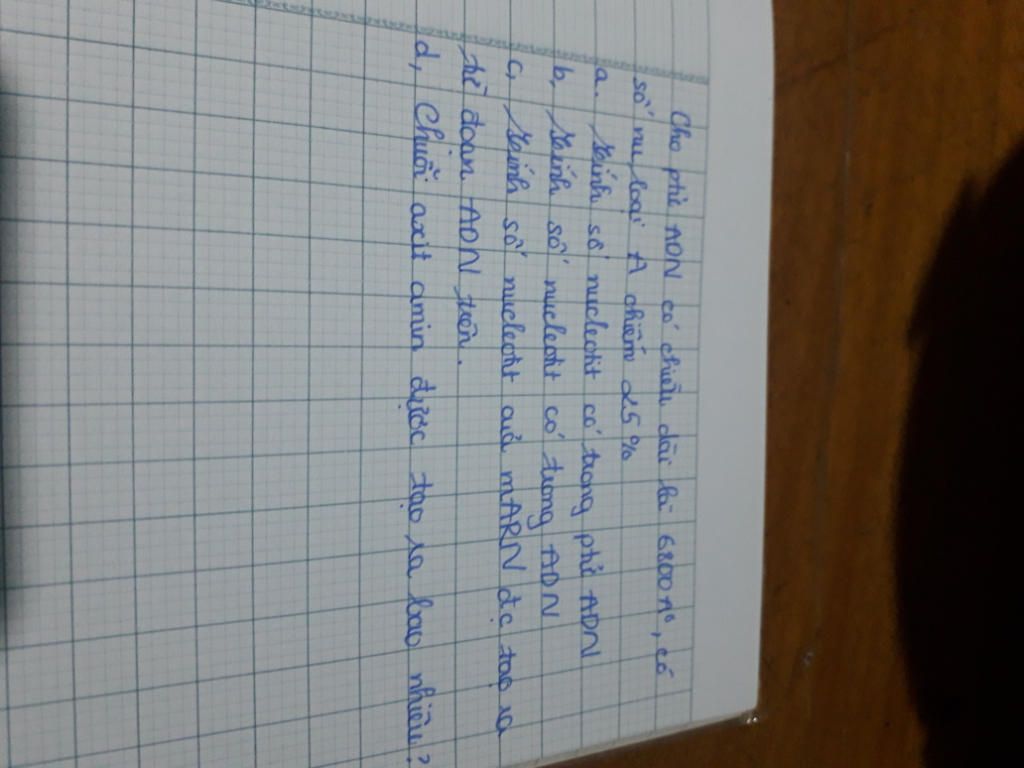 Cho phử ADN có chiều dài là 6800A°, có
số nu loại A chiếm 25%
a. Tính số nucleotit có trong phử ADN
b, Tính số nucleotit có trong ADN
c, Tính số nucleotit của mARN đc tạo ra
từ đoạn ADN trên.
d, Chuỗi axit amin được tạo ra bao nhiêu?